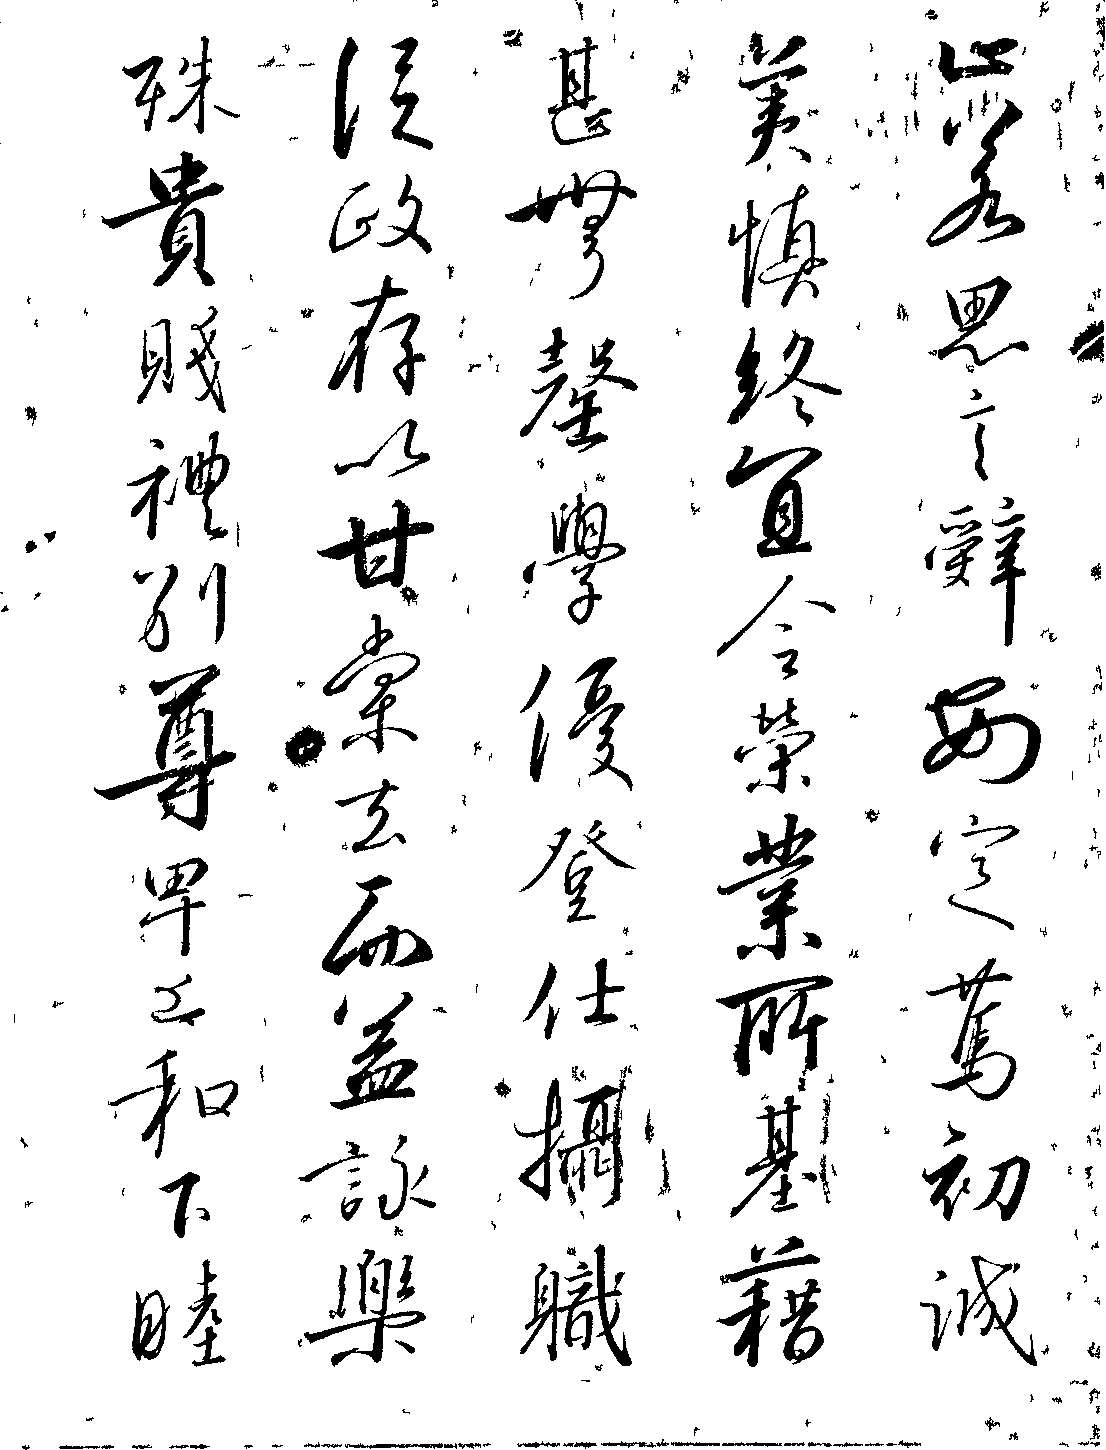 止若思言辭安定篤初誠
美慎終宜令榮業所基藉
甚無罄學優登仕攝職
從政存以甘棠去而益詠樂
殊貴賤禮別尊卑上和下睦